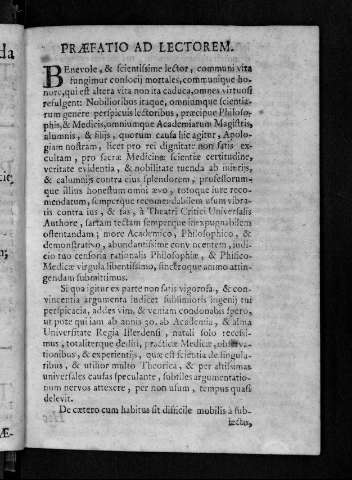 PRÆFATIO AD LECTOREM.
BEnevole, & scientissime lector, communi vita
fungimur consocij mortales, communique ho-
nore, qui est altera vita non ita caduca, omnes virtuosi
refulgent: Nobilioribus itaque, omniumque scientia-
rum genere perspicuis lectoribus, præcipue Philoso-
phis, & Medicis, omniumque Academiarum Magistris,
alumnis, & filijs, quorum causa hic agitur, Apolo-
giam nostram, licet pro rei dignitate non satis ex-
cultam, pro sacræ Medicinæ scientiæ certitudine,
veritate evidentia, & nobilitate tuenda ab iniurijs,
& calumnijs contra eius splendorem, professorum-
que illius honestum omni ævo, totoque iure reco-
mendatum, semperque recomendabilem usum vibra-
tis contra ius, & fas, à Theatri Critici Universalis
Authore, sartam tectam semperque inexpugnabilem
ostentandam; more Academico, Philosophico, &
demonstrativo, abundantissime convincentem, iudi-
cio tuo censoria rationalis Philosophiæ, & Phisico-
Medicæ virgula libentissimo, sinceroque animo attin-
gendam submittimus.
Si qua igitur ex parte non satis vigorosa, & con-
vincentia argumenta indicet sublimioris ingenij tui
perspicacia, addes vim, & veniam condonabis spero,
ut pote qui iam ab annis 30. ab Academia, & alma
Universitate Regia Illerdensi, natali solo recessi-
mus, totaliterque desisi, practicæ Medicæ, observa-
tionibus, & experientijs, quæ est scientia de singula-
ribus, & utilior multo Theorica, & per altissimas
universales causas speculante, subtiles argumentatio-
num nervos attexere, per non usum, tempus quasi
delevit.
De cætero cum habitus sit difficile mobilis à sub-
iectu,